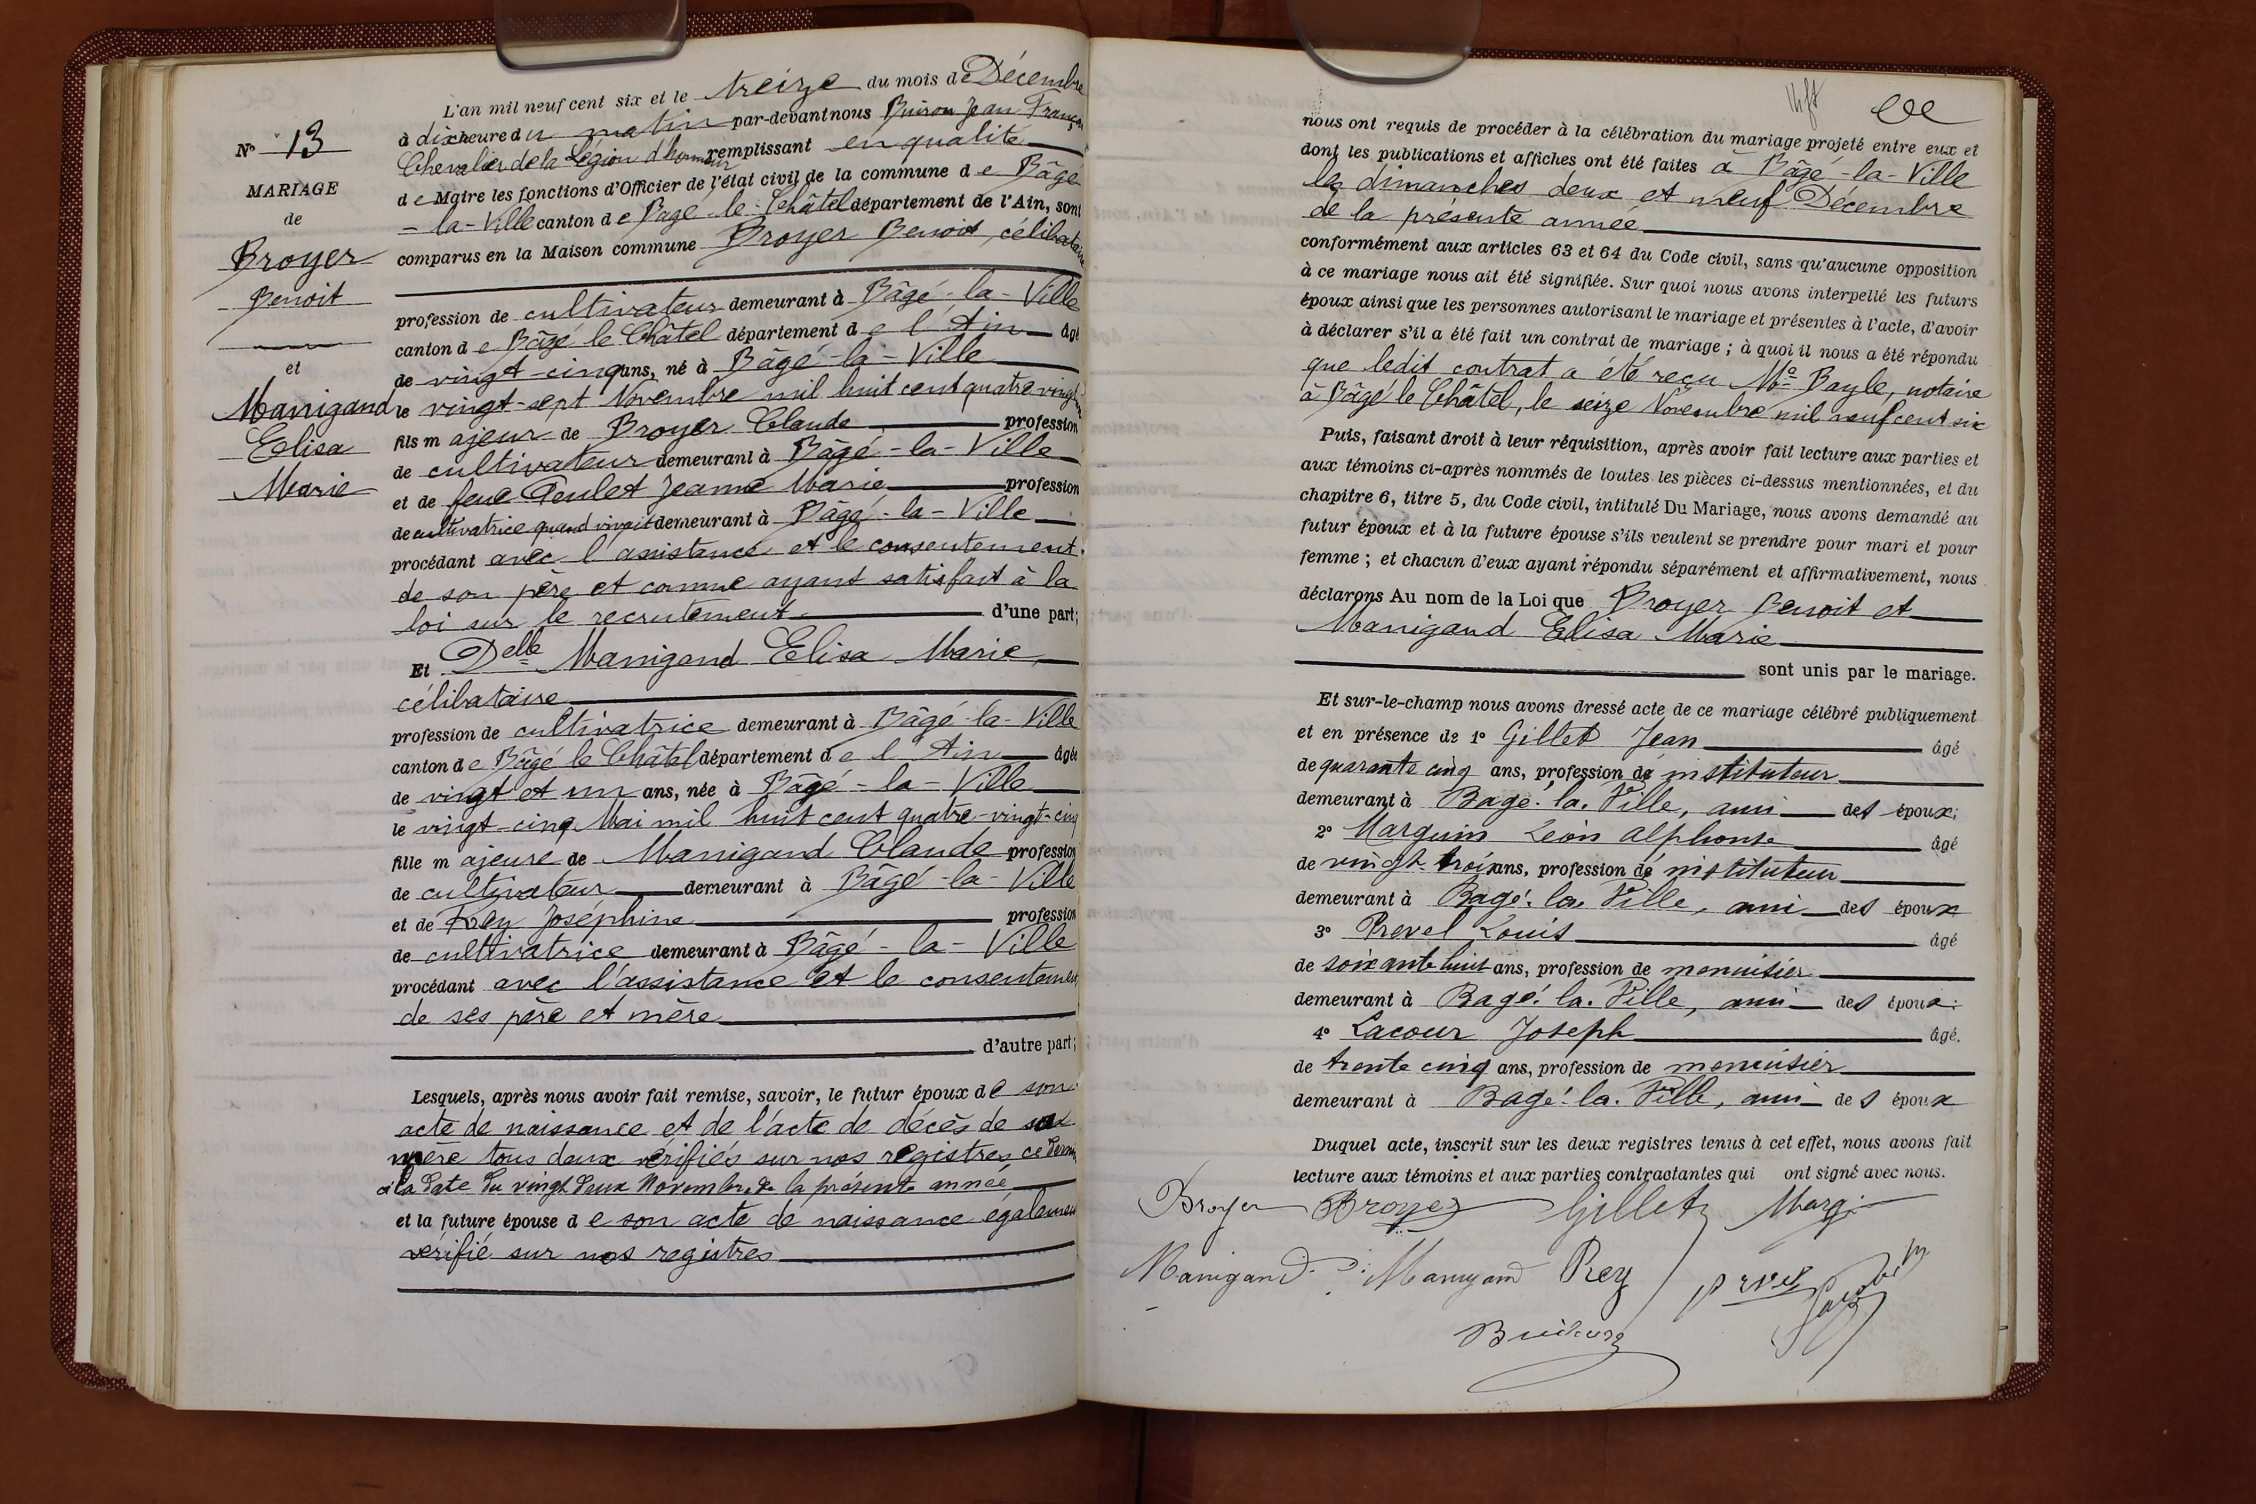 L'an mil neuf cent six et le treize du mois de Décembre
à dix heure du matin par-devant nous Buiron Jean François
Chevalier de la Légion d'honneur remplissant en qualité
de Maire les fonctions d'Officier de l'état civil de la commune de Bâgé
-la-Ville canton de Bagé-le-Châtel département de l'Ain, sont
comparus en la Maison commune Broyer Benoit, célibataire
profession de cultivateur demeurant à Bâgé-la-Ville
canton de Bâgé le Châtel département de l'Ain âgé
de vingt-cinq ans, né à Bâgé-la-Ville
le vingt-sept Novembre mil huit cent quatre vingt
fils majeur de Broyer Claude profession
de cultivateur demeurant à Bâgé-la-Ville
et de feue Jeanne Marie profession
de cultivatrice quand vivait demeurant à Bâgé-la-Ville
procédant avec l'assistance et le consentement
de son père et comme ayant satisfait à la
loi sur le recrutement d'une part;
Et Delle Manigand Elisa Marie
célibataire
profession de cultivatrice demeurant à Bâgé-la-Ville
canton de Bâgé le Châtel département de l'Ain âgée
de vingt et un ans, née à Bâgé-la-Ville
le vingt-cinq Mai mil huit cent quatre-vingt-cinq
fille majeure de Manigand Claude profession
de cultivateur demeurant à Bâgé-la-Ville
et de Rey Joséphine profession
de cultivatrice demeurant à Bâgé-la-Ville
procédant avec l'assistance et le consentement
de ses père et mère
d'autre part;
Lesquels, après nous avoir fait remise, savoir, le futur époux de son
acte de naissance et de l'acte de décès de sa
mère tous deux vérifiés sur nos registres ce dernier
à la date du vingt deux Novembre de la présente année
et la future épouse de son acte de naissance également
vérifié sur nos registres
No 13
MARIAGE
de
Broyer
Benoit
et
Manigand
Elisa
Marie
nous ont requis de procéder à la célébration du mariage projeté entre eux et
dont les publications et affiches ont été faites à Bâgé-la-Ville
les dimanches deux et neuf Décembre
de la présente année
conformément aux articles 63 et 64 du Code civil, sans qu'aucune opposition
à ce mariage nous ait été signifiée. Sur quoi nous avons interpellé les futurs
époux ainsi que les personnes autorisant le mariage et présentes à l'acte, d'avoir
à déclarer s'il a été fait un contrat de mariage; à quoi il nous a été répondu
que ledit contrat a été reçu Me Bayle, notaire
à Bâgé le Châtel, le seize Novembre mil neuf cent six
Puis, faisant droit à leur réquisition, après avoir fait lecture aux parties et
aux témoins ci-après nommés de toutes les pièces ci-dessus mentionnées, et du
chapitre 6, titre 5, du Code civil, intitulé Du Mariage, nous avons demandé au
futur époux et à la future épouse s'ils veulent se prendre pour mari et pour
femme; et chacun d'eux ayant répondu séparément et affirmativement, nous
déclarons Au nom de la Loi que Broyer Benoit et
Manigand Elisa Marie
sont unis par le mariage.
Et sur-le-champ nous avons dressé acte de ce mariage célébré publiquement
et en présence de 1° Gillet Jean âgé
de quarante cinq ans, profession de instituteur
demeurant à Bagé-la-Ville, ami des époux;
2° Marguin Léon Alphonse âgé
de vingt-trois ans, profession de instituteur
demeurant à Bagé-la-Ville, ami des époux
3° Prevel Louis âgé
de soixante huit ans, profession de menuisier
demeurant à Bagé-la-Ville, ami des époux;
4° Lacour Joseph âgé.
de trente cinq ans, profession de menuisier
demeurant à Bagé-la-Ville, ami des époux
Duquel acte, inscrit sur les deux registres tenus à cet effet, nous avons fait
lecture aux témoins et aux parties contractantes qui ont signé avec nous.
Broyer Broyer Gillet
Manigand Manigand Rey